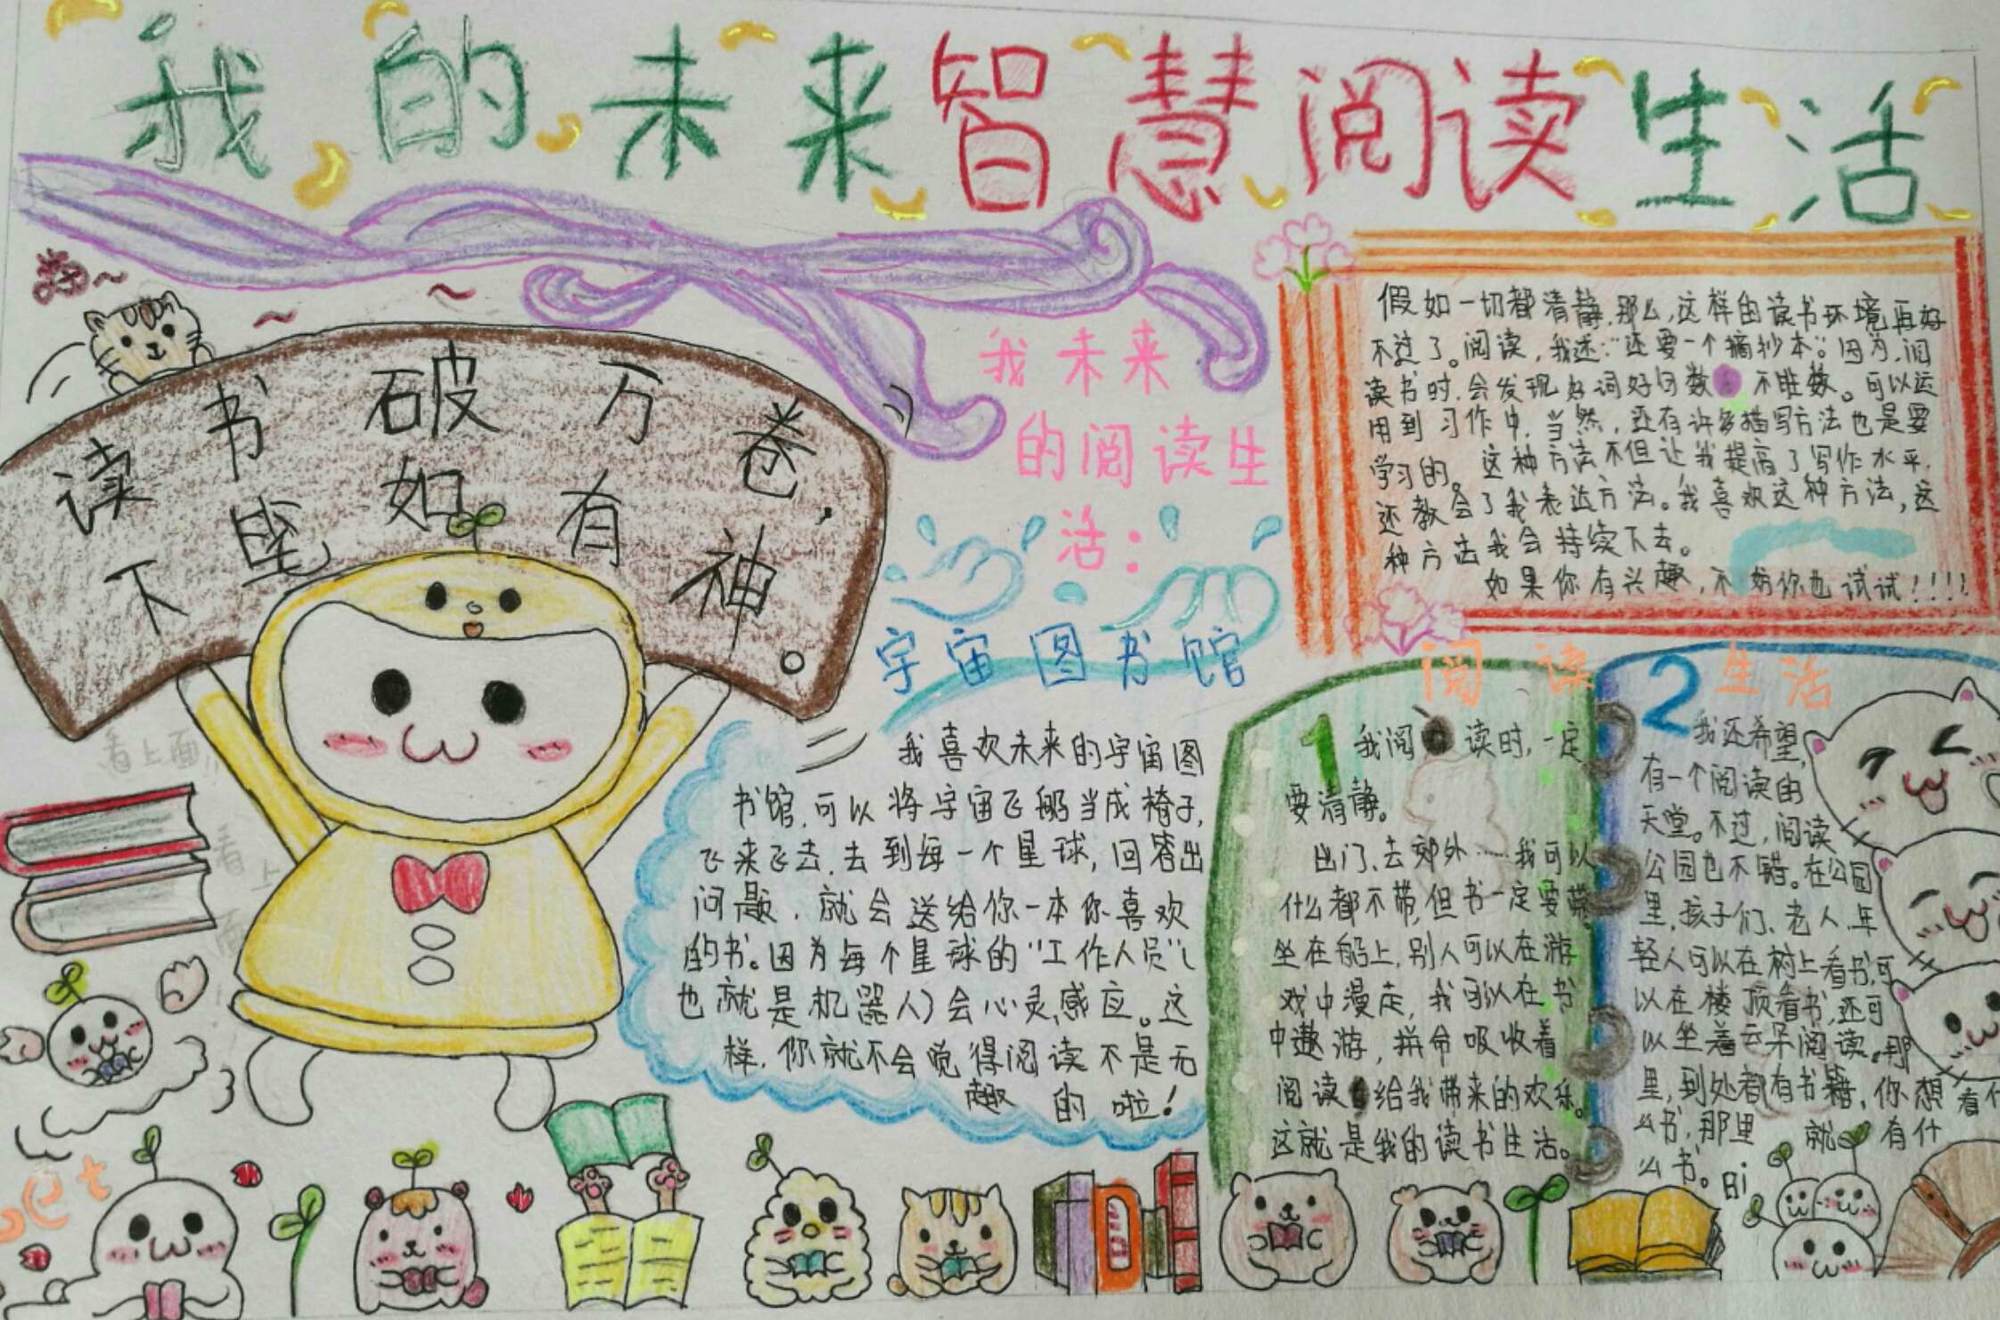 我的未来智慧阅读生活
喵~
读书破万卷,
下笔如有神。
我未来
的阅读生
活:
宇宙图书馆
假如一切都清静,那么,这样的读书环境再好
不过了。阅读,我还:"还要一个摘抄本"。因为,阅
读书时,会发现好词好句数 不胜数。可以运
用到习作中,当然,还有许多描写方法也是要
学习的。这种方法不但让我提高了写作水平,
还教会了我表达方法。我喜欢这种方法,这
种方法我会持续下去。
如果你有兴趣,不妨你也试试!!!!
看上面!!
看上面
我喜欢未来的宇宙图
书馆,可以将宇宙飞船当成椅子,
飞来飞去,去到每一个星球,回答出
问题,就会送给你一本你喜欢
的书。因为每个星球的"工作人员"(
也就是机器人)会心灵感应。这
样,你就不会觉得阅读不是无
趣的啦!
阅读生活
1 我阅 读时,一定
要清静。
出门、去郊外……我可以
什么都不带,但书一定要带。
坐在船上,别人可以在游
戏中漫走,我可以在书
中遨游,拼命吸收着
阅读 给我带来的欢乐。
这就是我的读书生活。
2 我还希望,
有一个阅读的
天堂。不过,阅读
公园也不错。在公园
里,孩子们、老人、年
轻人可以在树上看书,可
以在楼顶看书,还可
以坐着云朵阅读。那
里,到处都有书籍,你想看什
么书,那里就有什
么书。